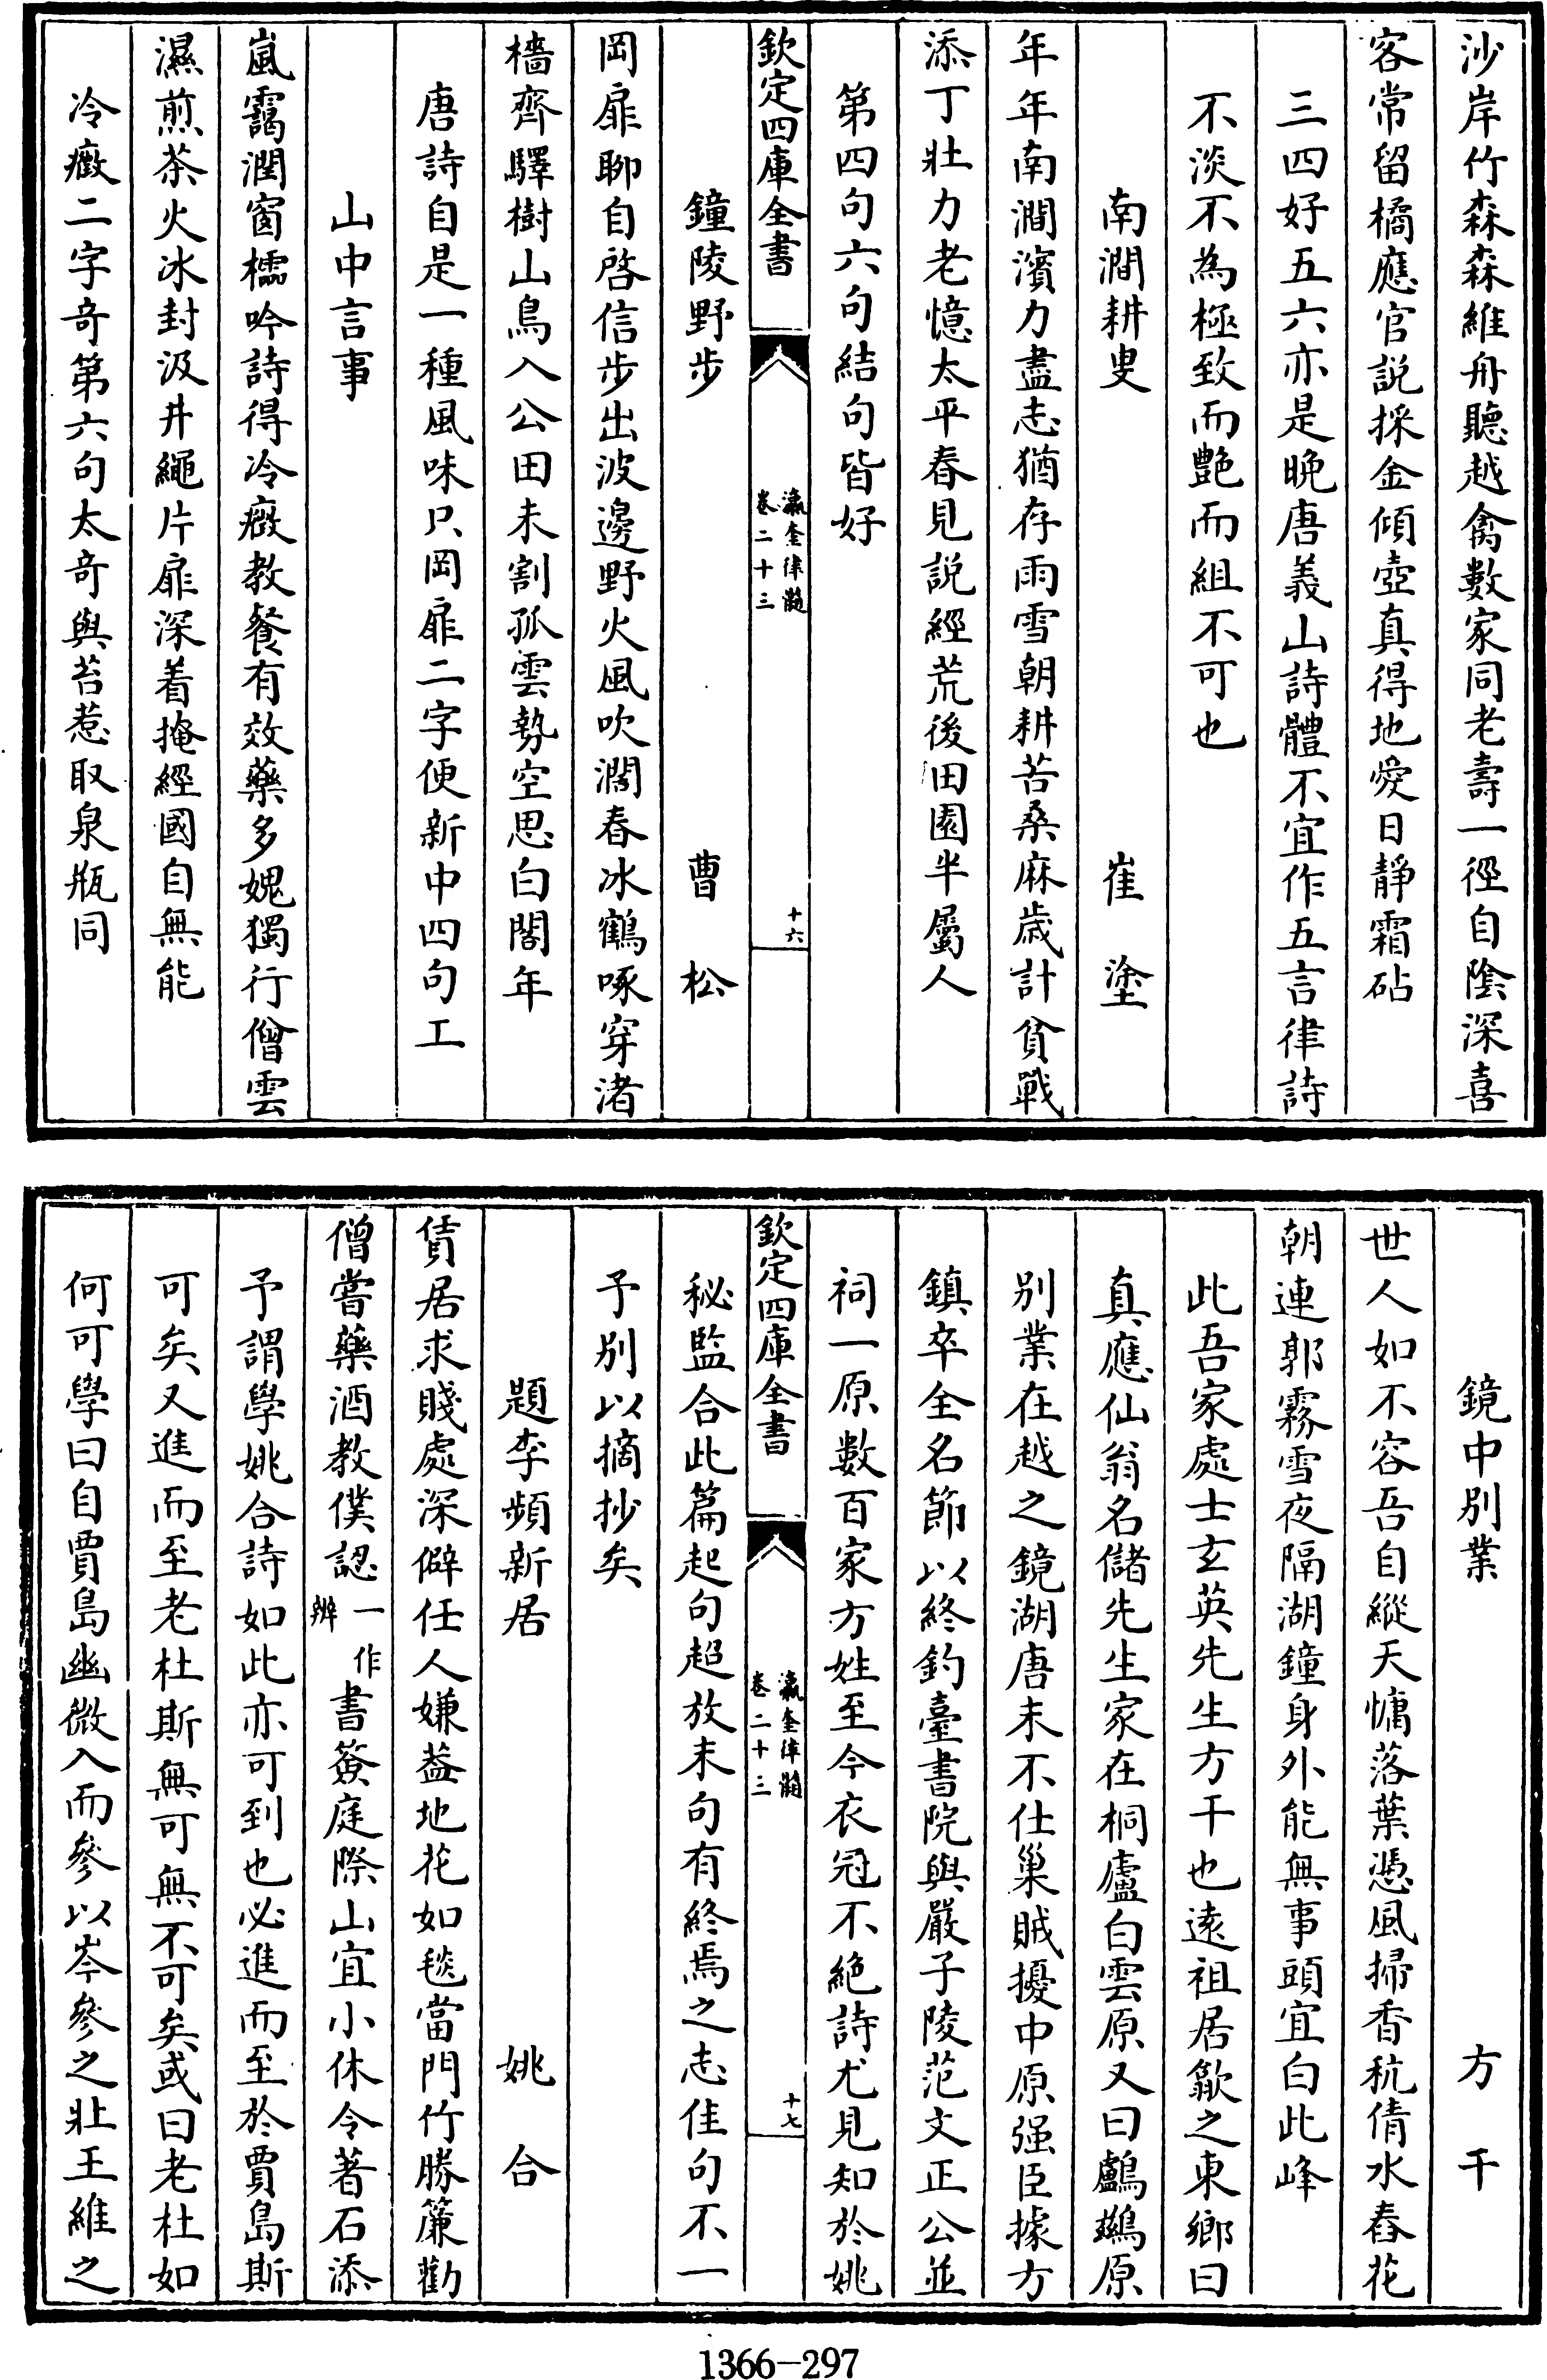 沙岸竹森森維舟聽越禽數家同老壽一徑自陰深喜
客常留橘應官説採金傾壺真得地愛日靜霜砧
三四好五六亦是晚唐義山詩體不宜作五言律詩
不淡不為極致而艶而組不可也
南澗耕叟　崔塗
年年南澗濱力盡志猶存雨雪朝耕苦桑麻歳計貧戰
添丁壯力老憶太平春見説經荒後田園半屬人
第四句六句結句皆好
欽定四庫全書　瀛奎律髓　卷二十三　十六
鐘陵野步　曹松
岡扉聊自啓信步出波邊野火風吹濶春冰鶴啄穿渚
檣齊驛樹山鳥入公田未割孤雲勢空思白閣年
唐詩自是一種風味只岡扉二字便新中四句工
山中言事
嵐靄潤窗櫺吟詩得冷癥教餐有效藥多媿獨行僧雲
濕煎茶火冰封汲井繩片扉深着掩經國自無能
冷癥二字竒第六句太竒與苔惹取泉瓶同
鏡中别業　方干
世人如不容吾自縱天慵落葉憑風掃香秔倩水舂花
朝連郭霧雪夜隔湖鐘身外能無事頭宜白此峰
此吾家處士玄英先生方干也遠祖居歙之東鄉曰
真應仙翁名儲先生家在桐廬白雲原又曰鸕鷀原
别業在越之鏡湖唐末不仕巢賊擾中原强臣據方
鎮卒全名節以終釣臺書院與嚴子陵范文正公並
祠一原數百家方姓至今衣冠不絶詩尤見知於姚
欽定四庫全書　瀛奎律髓　卷二十三　十七
秘監合此篇起句超放末句有終焉之志佳句不一
予别以摘抄矣
題李頻新居　姚合
賃居求賤處深僻任人嫌葢地花如毯當門竹勝簾勸
僧嘗藥酒教僕認一作辨書簽庭際山宜小休令著石添
予謂學姚合詩如此亦可到也必進而至於賈島斯
可矣又進而至老杜斯無可無不可矣或曰老杜如
何可學曰自賈島幽微入而參以岑參之壯王維之
1366—297